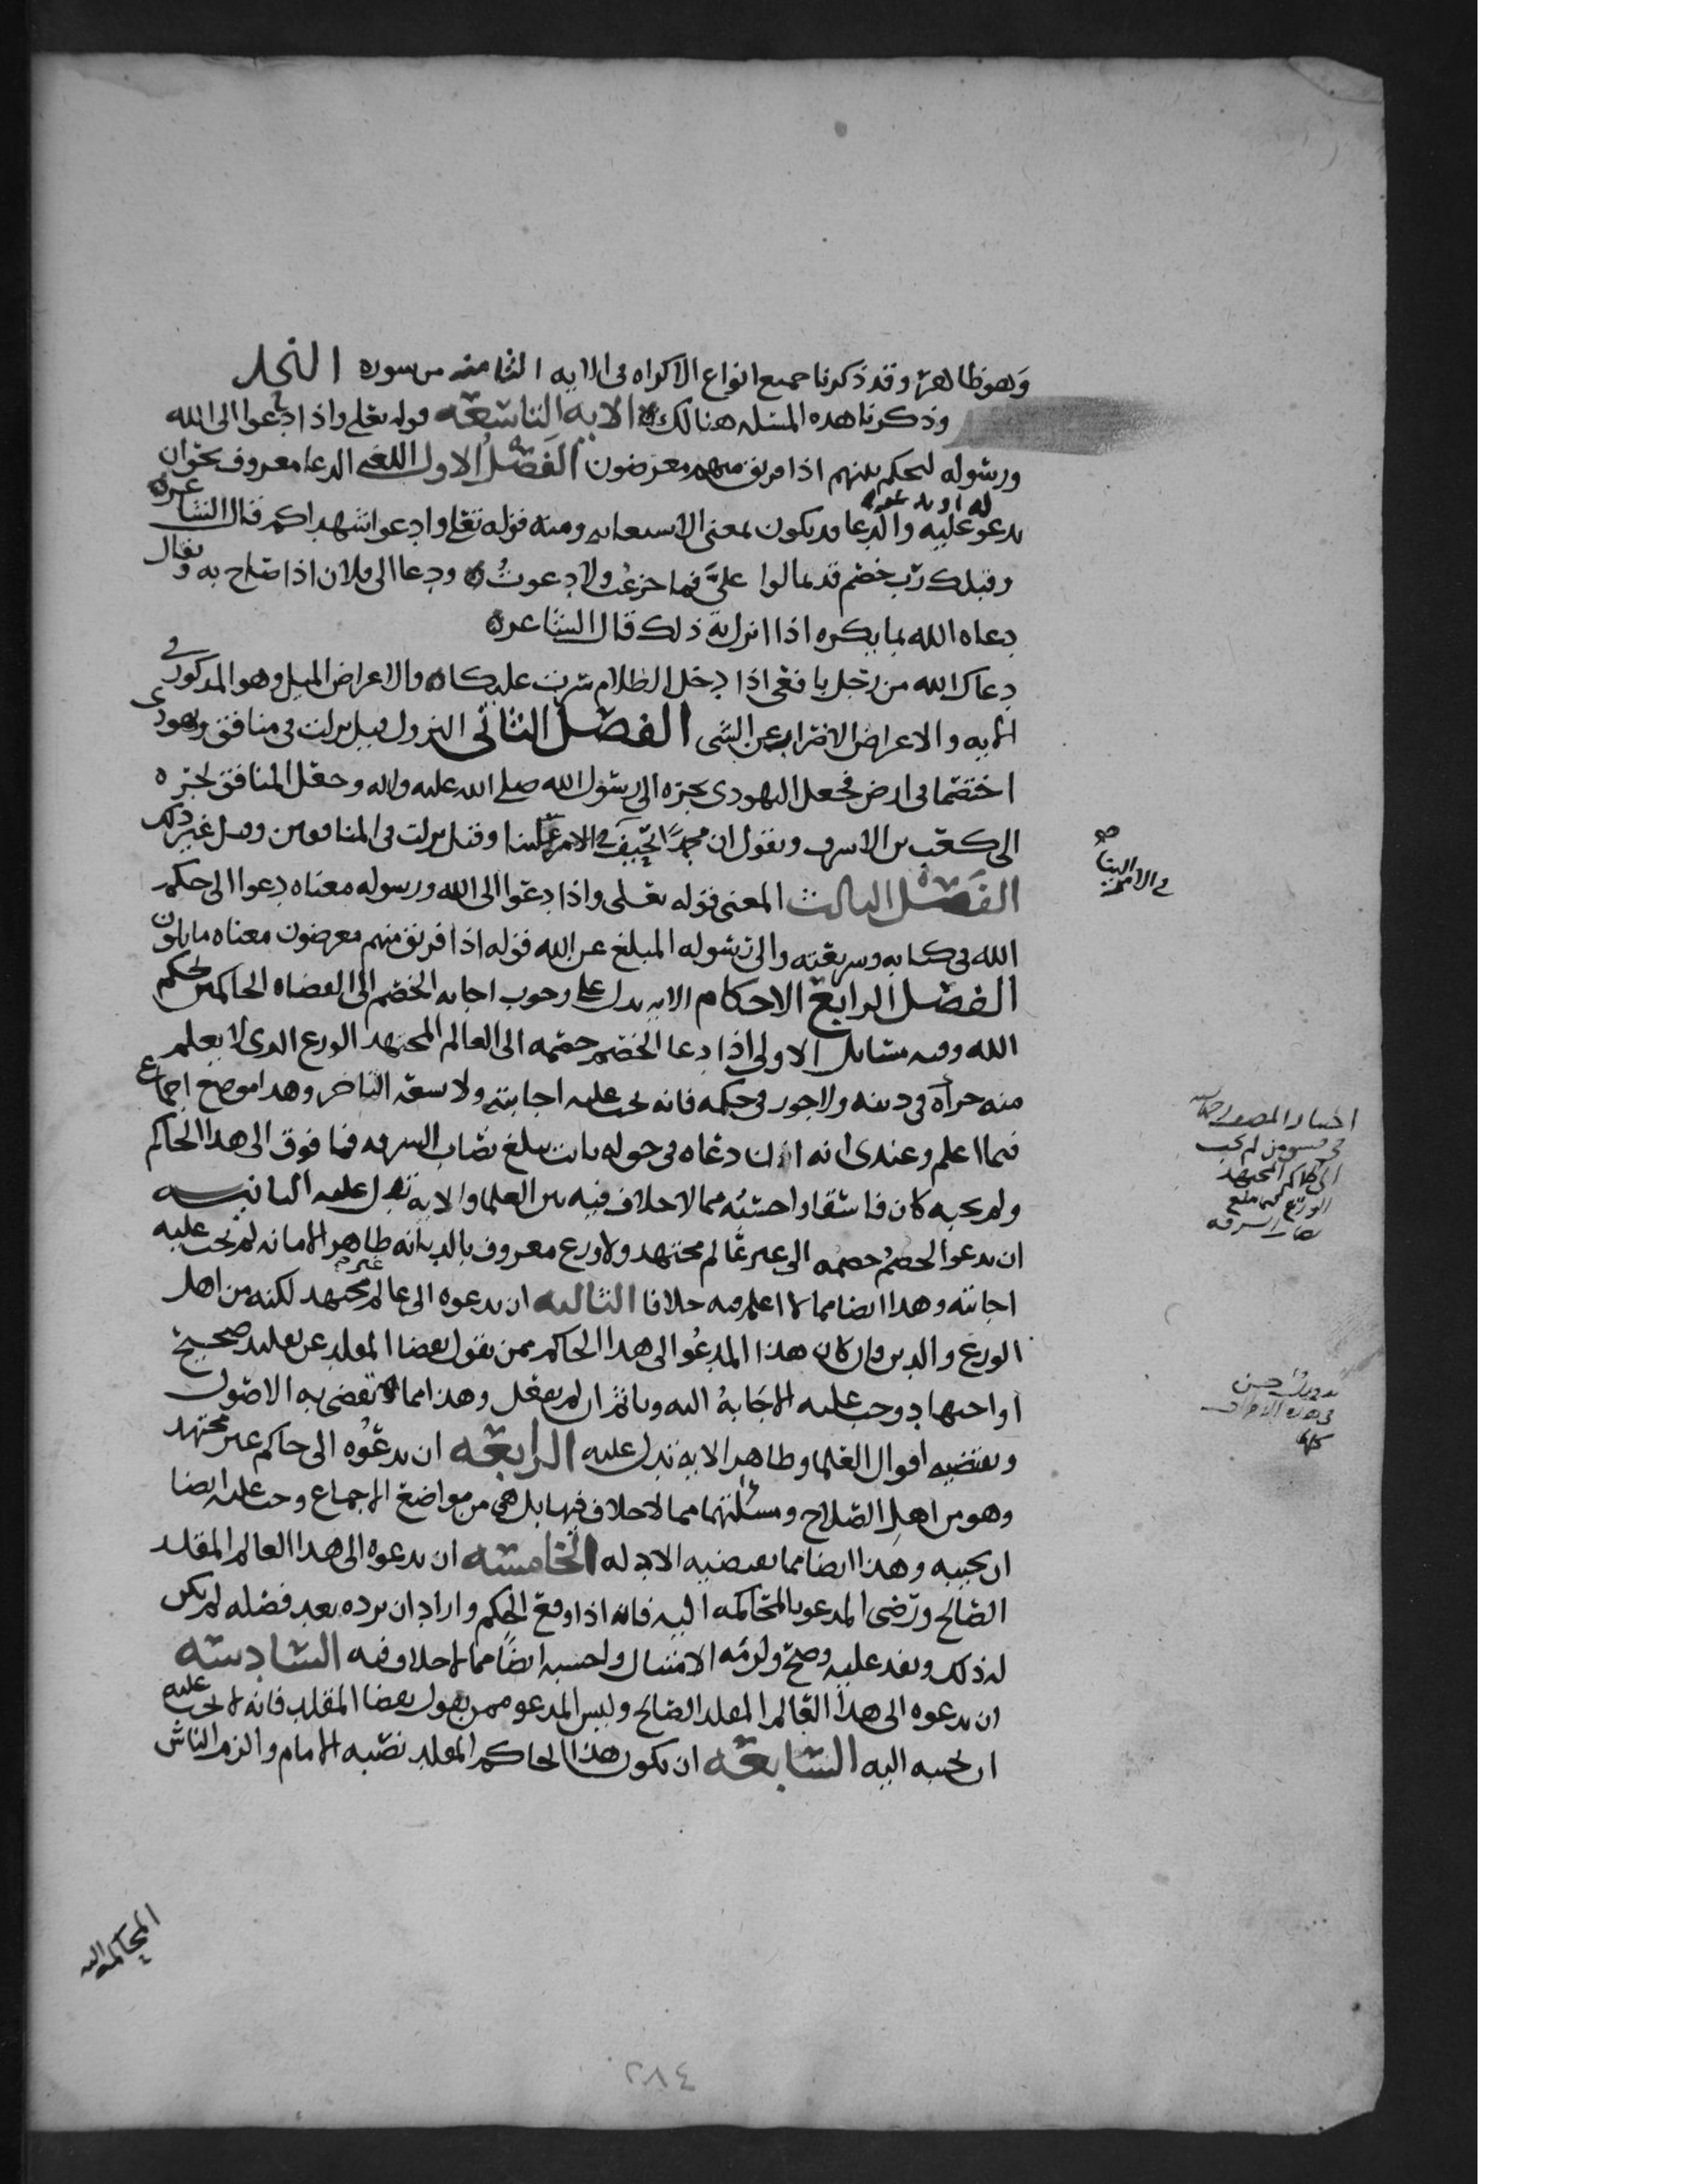 وهو ظاهر وقد ذكرنا جميع انواع الاكراه في الايه الثامنه من سوره النحل
وذكرنا هذه المسئله هنالك الايه التاسعه قوله تعلى واذا دعوا الى الله
ورسوله ليحكم بينهم اذا فريق منهم معرضون الفصل الاول اللغه الدعا معروف نحو ان
يدعو عليه والدعا قد يكون بمعنى الاستعانه ومنه قوله تعلى وادعوا شهداكم قال الشاعر
وقبلك رب خصم قد تمالوا عليَّ فما جزعت ولا دعوتُ ودعا الى فلان اذا صاح به ويقال
دعاه الله بما يكره اذا انزل به ذلك قال الشاعر
دعاك الله من رجل بافعى اذا دخل الظلام سرت عليكا والاعراض الميل وهو المذكور في
الايه والاعراض الاضراب عن الشي الفصل الثاني النزول قيل نزلت في منافق ويهودي
اختصما في ارض فجعل اليهودى يجره الى رسول الله صلى الله عليه واله وجعل المنافق يجره
الى كعب بن الاشرف ويقول ان محمدًا يحيف في الامر علينا وقيل نزلت في المنافقين وقيل غير ذلك
الفصل الثالث المعنى قوله تعلى واذا دعوا الى الله ورسوله معناه دعوا الى حكم
الله في كتابه وشريعته والى رسوله المبلغ عن الله قوله اذا فريق منهم معرضون معناه مايلون
الفصل الرابع الاحكام الايه تدل على وجوب اجابه الخصم الى القضاه الحاكمين بحكم
الله وفيه مسائل الاولى اذا دعا الخصم خصمه الى العالم المجتهد الورع الذى لا يعلم
منه جرأه في دينه ولا جور في حكمه فانه يجب عليه اجابته ولا يسعه التاخر وهذا موضع اجماع
فيما اعلم وعندى انه ان دعاه في حق له يبلغ نصاب السرقه فما فوق الى هذا الحاكم
ولم يجبه كان فاسقا واحسبه مما لا خلاف فيه بين العلما والايه تدل عليه الثانيه
ان يدعو الخصمُ خصمه الى غير عالم مجتهد ولا ورع معروف بالديانه ظاهر الامانه لم يجب عليه
اجابته وهذا ايضا مما لا اعلم فيه خلافا الثالثه ان يدعوه الى عالم غير مجتهد لكنه من اهل
الورع والدين وان كان هذا المدعو الى هذا الحاكم ممن يقول بقضا المقلد عن تقليد صحيح
او اجتهاد وجب عليه الاجابهُ اليه وياثم ان لم يفعل وهذا مما تقضى به الاصول
وتقتضيه اقوال العلما وظاهر الايه تدل عليه الرابعه ان يدعوه الى حاكم غير مجتهد
وهو من اهل الصلاح ومسئلتهما مما لا خلاف فيها بل هي من مواضع الاجماع وجب عليه ايضا
ان يجيبه وهذا ايضا مما تقتضيه الادله الخامسه ان يدعوه الى هذا العالم المقلد
الصالح ورضى المدعو بالمحاكمه اليه فانه اذا وقع الحكم واراد ان يرده بعد فصله لم يكن
له ذلك ونفذ عليه وصح ولزمه الامتثال واحسبه ايضًا مما لا خلاف فيه السادسه
ان يدعوه الى هذا العالم المقلد الصالح وليس المدعو ممن يقول بقضا المقلد فانه لا يجب عليه
ان يجيبه اليه السابعه ان يكون هذا الحاكم المقلد نصبه الامام والزم الناس
المحاكمه اليه
في الامر
الى الحاكم المجتهد
الورع
نصاب السرقه
حسن
كلها
٢٨٤